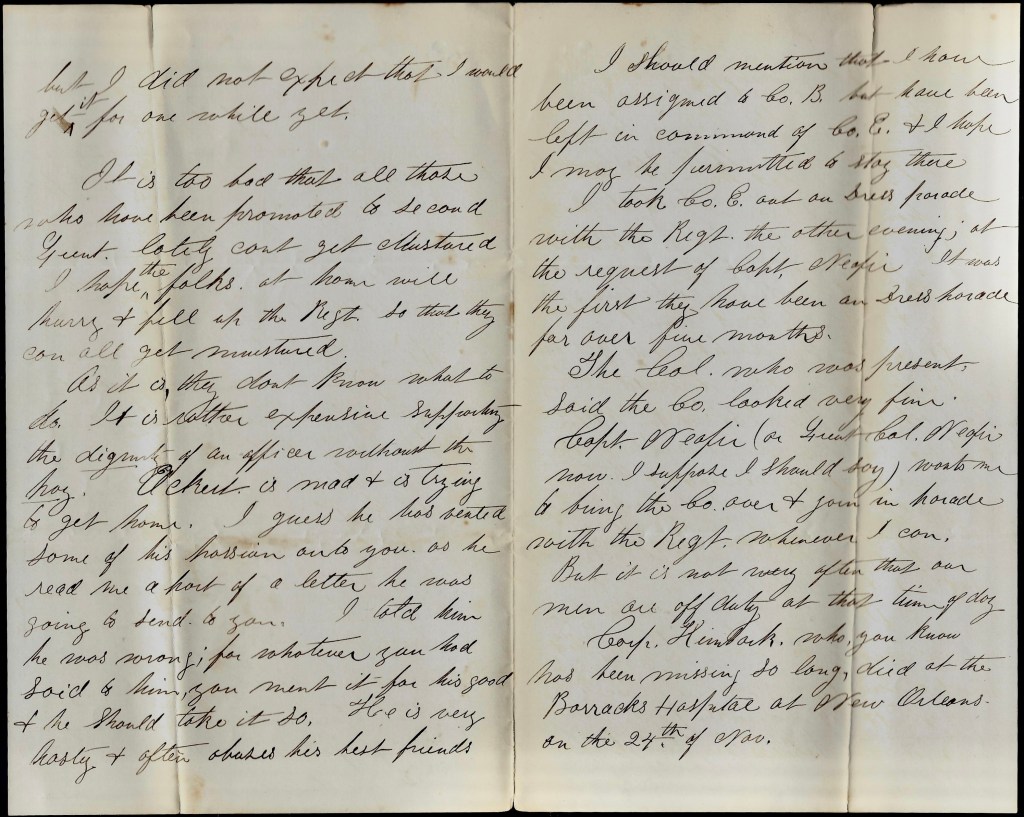 but I did not expect that I would
get it for one while yet.
It is too bad that all those
who have been promoted to second
Lieut. lately cant get Mustured
I hope the folks. at home will
hurry & fill up the Regt. so that they
can all get mustured.
As it is, they dont know what to
do. It is rather expensive supporting
the dignity of an officer without the
pay. Eckert. is mad & is trying
to get home. I guess he has vented
some of his passion onto you. as he
read me a part of a letter he was
going to send. to you. I told him
he was wrong; for whatever you had
said to him, you ment it for his good
& he should take it so. He is very
hasty & often abuses his best friends
I should mention that I have
been assigned to Co. B. but have been
left in command of Co. E. & I hope
I may be permitted to stay there
I took Co. E. out on Dress parade
with the Regt. the other evening, at
the request of Capt. Neafie It was
the first they have been on Dress parade
for over five months.
The Col. who was present,
said the Co. looked very fine.
Capt. Neafie (or Lieut Col. Neafie
now. I suppose I should say) wants me
to bring the Co. over & join in parade
with the Regt. whenever I can.
But it is not very often that our
men are off duty at that time of day
Corp. who, you know
has been missing so long, died at the
Barracks Hospital at New Orleans.
on the 24th. of Nov.